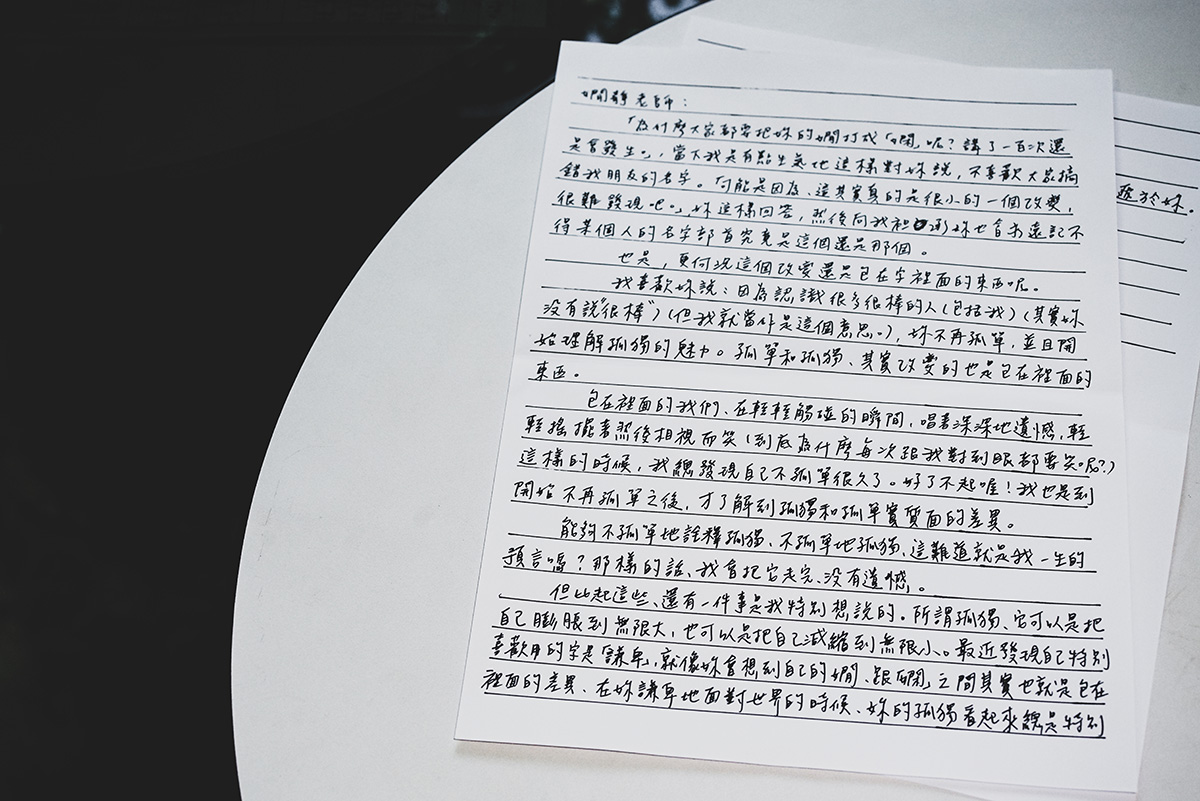 嫺靜老師：
「為什麼大家都要把妳的嫺打成「嫻」呢？講了一百次還
是會發生。」，當下我是有點生氣地這樣對妳說，不喜歡大家搞
錯我朋友的名字。「可能是因為、這其實真的是很小的一個改變，
很難發現吧。」妳這樣回答，然後向我坦承妳也會永遠記不
得某個人的名字部首究竟是這個還是那個。
也是，更何況這個改變還是包在字裡面的東西呢。
我喜歡妳說：因為認識很多很棒的人（包括我）（其實妳
沒有說"很棒"）（但我就當作是這個意思。），妳不再孤單，並且開
始理解孤獨的魅力。孤單和孤獨、其實改變的也是包在裡面的
東西。
包在裡面的我們、在輕輕觸碰的瞬間，唱著深深地遺憾，輕
輕搖擺著然後相視而笑（到底為什麼每次跟我對到眼都要笑呢？）
這樣的時候，我總發現自己不孤單很久了。好了不起喔！我也是到
開始不再孤單之後，才了解到孤獨和孤單實質面的差異。
能夠不孤單地詮釋孤獨、不孤單地孤獨、這難道就是我一生的
預言嗎？那樣的話、我會把它走完、沒有遺憾。
但比起這些、還有一件事是我特別想說的。所謂孤獨、它可以是把
自己膨脹到無限大，也可以是把自己減縮到無限小。最近發現自己特別
喜歡用的字是「謙卑」，就像妳會想到自己的嫺、跟「嫻」之間其實也就是包在
裡面的差異、在妳謙卑地面對世界的時候、妳的孤獨看起來總是特別
於妳。